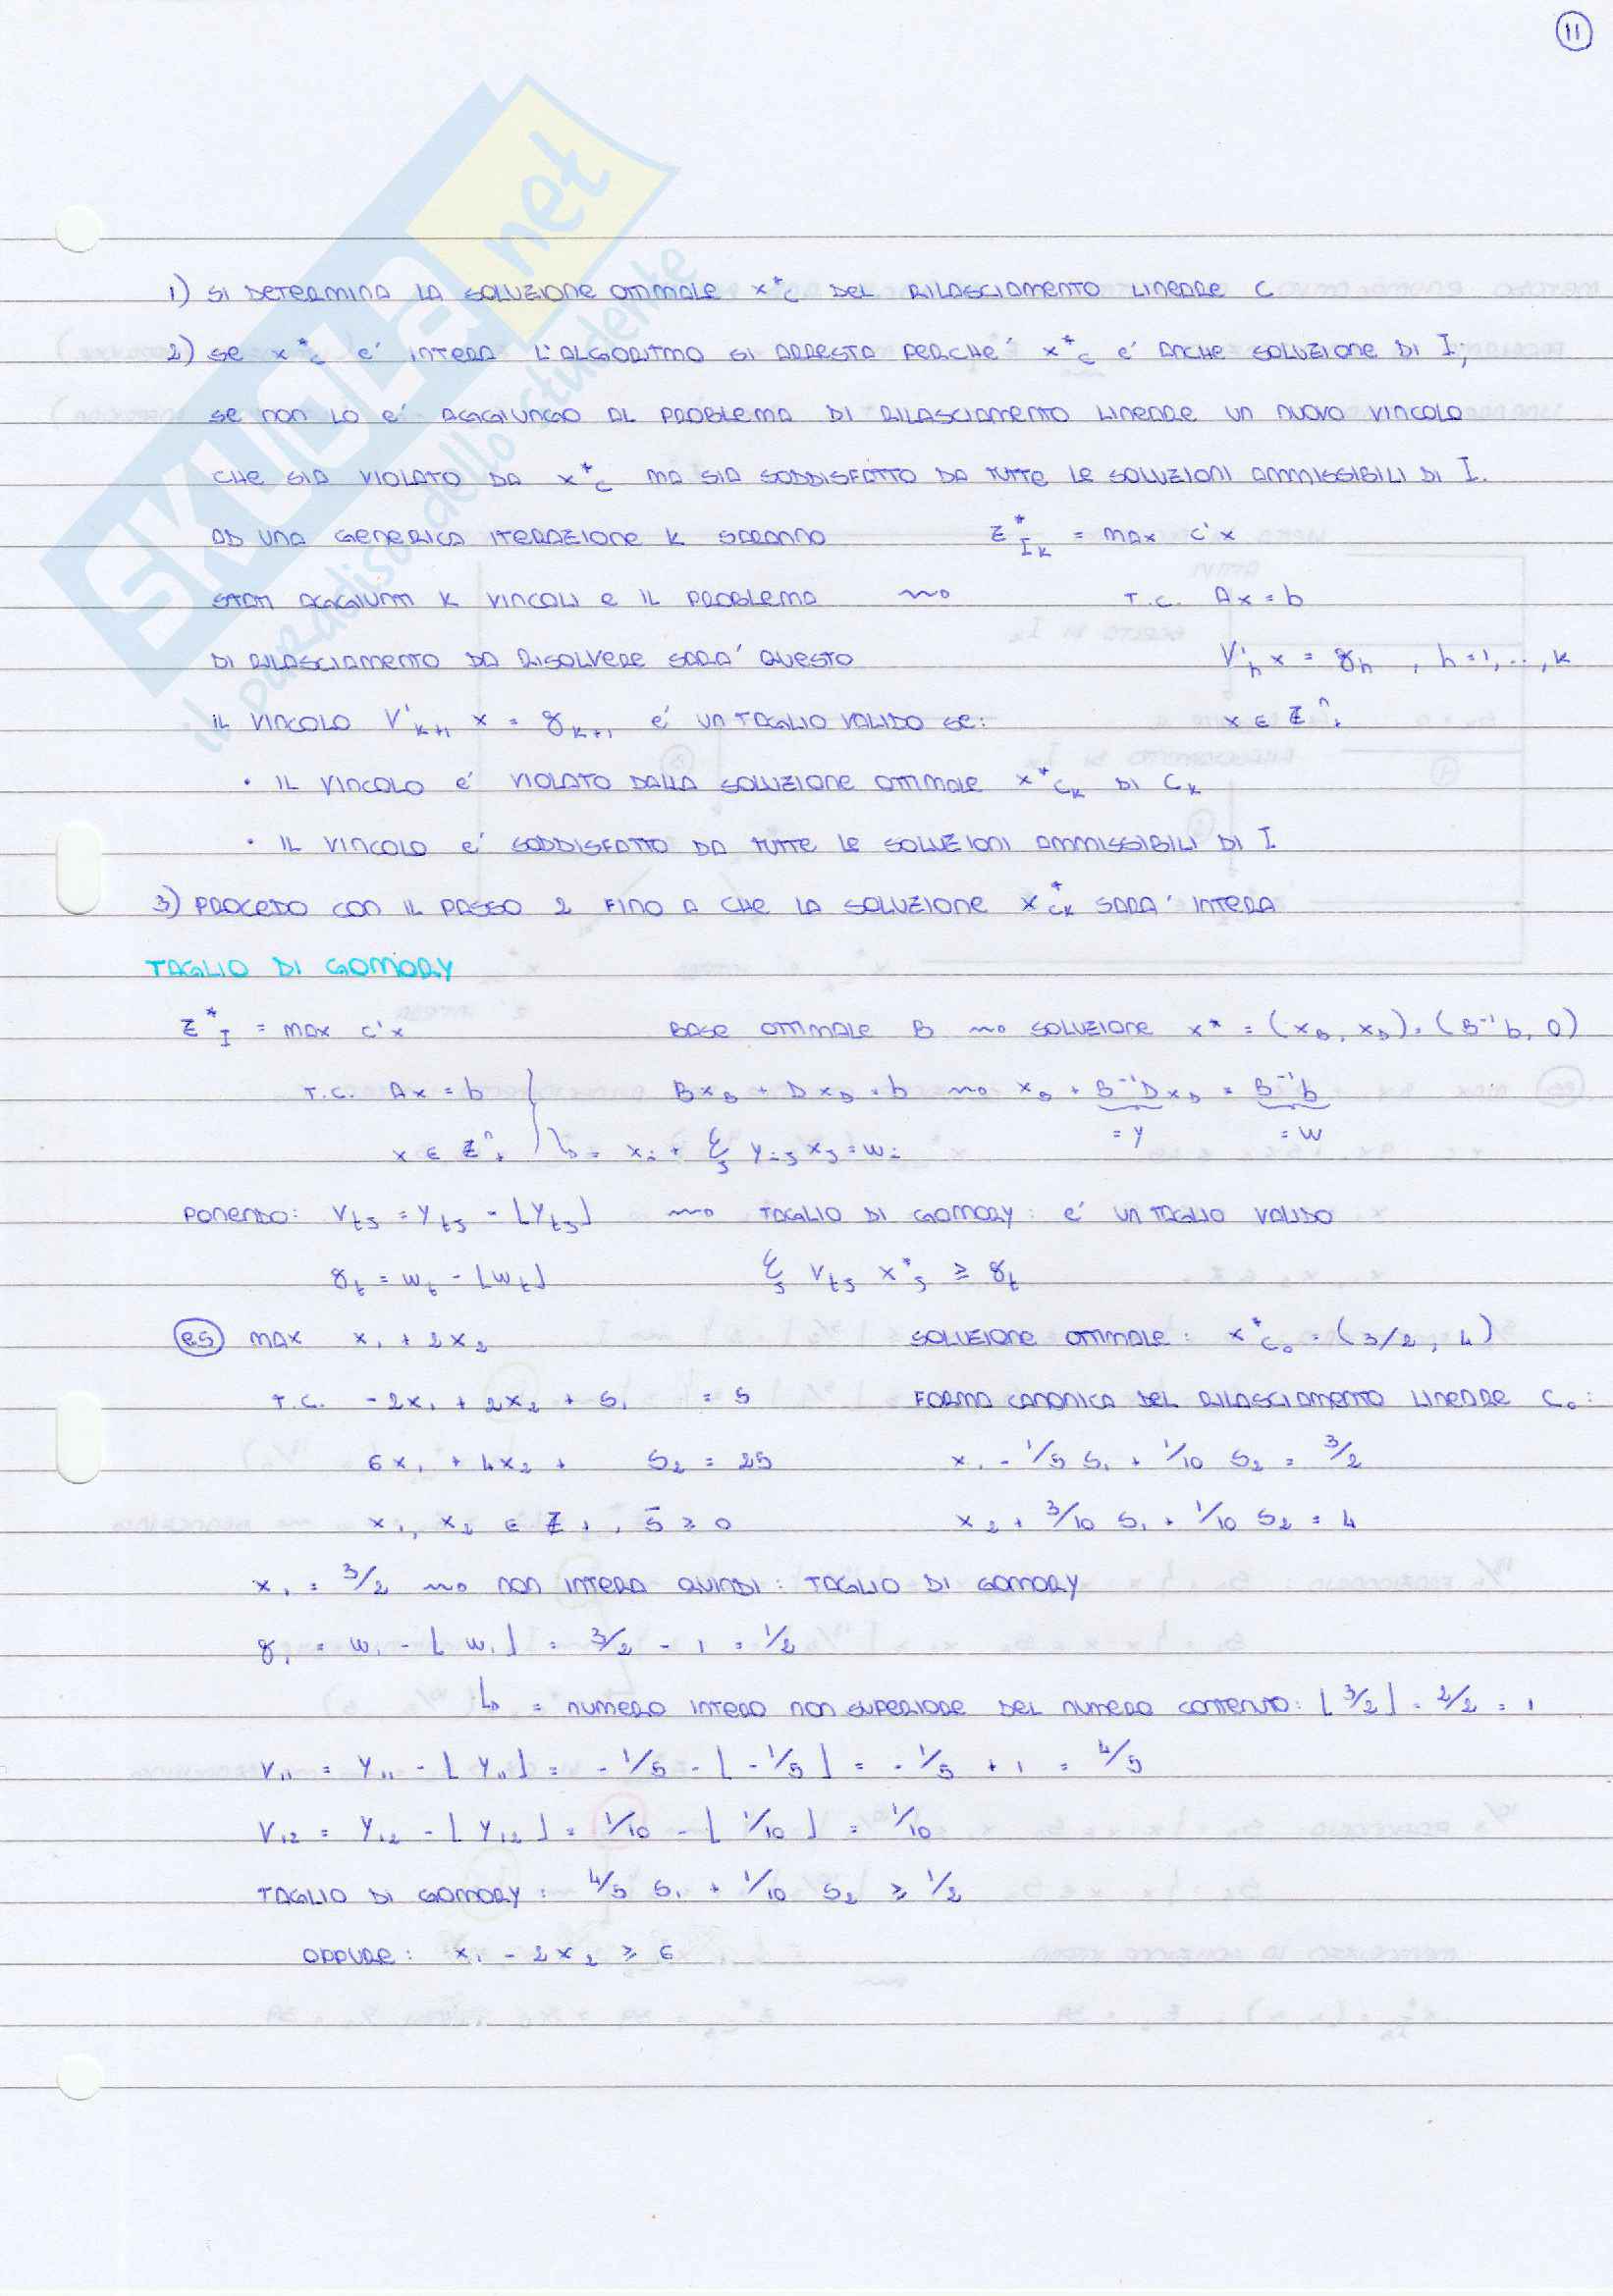 11
SKUOLA.net
il paradiso dello studente
1) SI DETERMINA LA SOLUZIONE OTTIMALE x*_C DEL RILASCIAMENTO LINEARE C
2) SE x*_C E' INTERA L'ALGORITMO SI ARRESTA PERCHE' x*_C E' ANCHE SOLUZIONE DI I;
SE NON LO E' AGGIUNGO AL PROBLEMA DI RILASCIAMENTO LINEARE UN NUOVO VINCOLO
CHE SIA VIOLATO DA x*_C MA SIA SODDISFATTO DA TUTTE LE SOLUZIONI AMMISSIBILI DI I.
AD UNA GENERICA ITERAZIONE K SARANNO z*_{I_K} = MAX c'x
STATI AGGIUNTI K VINCOLI E IL PROBLEMA ⇝ T.C. Ax = b
DI RILASCIAMENTO DA RISOLVERE SARA' QUESTO V'_h x = γ_h , h=1,..,K
IL VINCOLO V'_{K+1} x = γ_{K+1} E' UN TAGLIO VALIDO SE: x ∈ Z^n_+
• IL VINCOLO E' VIOLATO DALLA SOLUZIONE OTTIMALE x*_{C_K} DI C_K
• IL VINCOLO E' SODDISFATTO DA TUTTE LE SOLUZIONI AMMISSIBILI DI I
3) PROCEDO CON IL PASSO 2 FINO A CHE LA SOLUZIONE x*_{C_K} SARA' INTERA
TAGLIO DI GOMORY
z*_I = MAX c'x BASE OTTIMALE B ⇝ SOLUZIONE x* = (x_B, x_D) = (B⁻¹b, 0)
T.C. Ax = b } Bx_B + Dx_D = b ⇝ x_B + B⁻¹Dx_D = B⁻¹b
= Y = W
x ∈ Z^n_+ ↳ = x_i + Σ_j y_ij x_j = w_i
PONENDO: V_tj = Y_tj - ⌊Y_tj⌋ ⇝ TAGLIO DI GOMORY: E' UN TAGLIO VALIDO
γ_t = w_t - ⌊w_t⌋ Σ_j V_tj x*_j ≥ γ_t
ES MAX x₁ + 2x₂ SOLUZIONE OTTIMALE: x*_{C₀} = (3/2, 4)
T.C. -2x₁ + 2x₂ + S₁ = 5 FORMA CANONICA DEL RILASCIAMENTO LINEARE C₀:
6x₁ + 4x₂ + S₂ = 25 x₁ - 1/5 S₁ + 1/10 S₂ = 3/2
x₁, x₂ ∈ Z₊, s̄ ≥ 0 x₂ + 3/10 S₁ + 1/10 S₂ = 4
x₁ = 3/2 ⇝ NON INTERA QUINDI: TAGLIO DI GOMORY
γ₁ = w₁ - ⌊w₁⌋ = 3/2 - 1 = 1/2
↳ = NUMERO INTERO NON SUPERIORE DEL NUMERO CONTENUTO: ⌊3/2⌋ = 2/2 = 1
V₁₁ = Y₁₁ - ⌊Y₁₁⌋ = -1/5 - ⌊-1/5⌋ = -1/5 + 1 = 4/5
V₁₂ = Y₁₂ - ⌊Y₁₂⌋ = 1/10 - ⌊1/10⌋ = 1/10
TAGLIO DI GOMORY: 4/5 S₁ + 1/10 S₂ ≥ 1/2
OPPURE: x₁ - 2x₂ ≥ 6